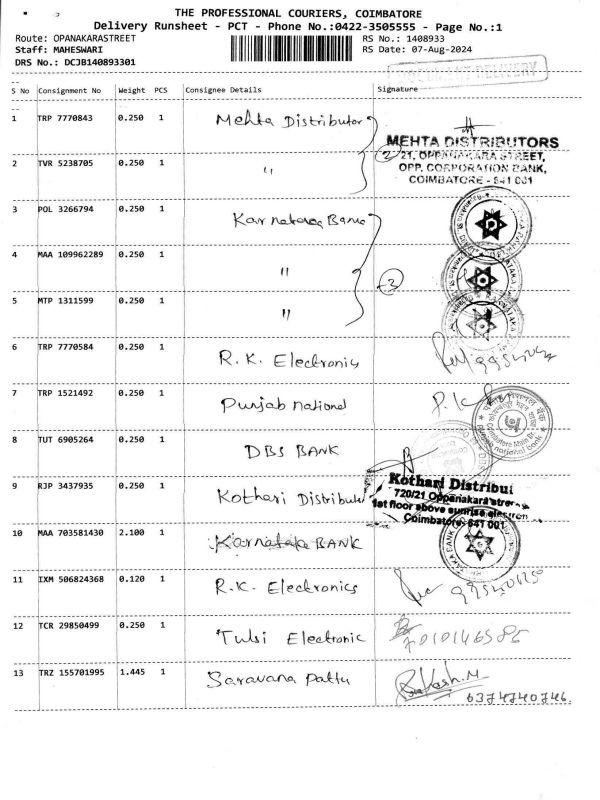 THE PROFESSIONAL COURIERS, COIMBATORE
Delivery Runsheet - PCT - Phone No.:0422-3505555 - Page No.:1
Route: OPANAKARASTREET RS No.: 1408933
Staff: MAHESWARI RS Date: 07-Aug-2024
DRS No.: DCJB140893301
DOCUMENT DELIVERY
S No Consignment No Weight PCS Consignee Details Signature
1 TRP 7770843 0.250 1 Mehta Distributor
MEHTA DISTRIBUTORS
21, OPPANAKARA STREET,
OPP. CORPORATION BANK,
COIMBATORE - 641 001
2 TVR 5238705 0.250 1 " 2
3 POL 3266794 0.250 1 Karnataka Bank
4 MAA 109962289 0.250 1 " 3
5 MTP 1311599 0.250 1 "
6 TRP 7770584 0.250 1 R.K. Electronics
7 TRP 1521492 0.250 1 Punjab National P.K
punjab national bank
8 TUT 6905264 0.250 1 DBS BANK
9 RJP 3437935 0.250 1 Kothari Distributor
Kothari Distribut
720/21 Oppanakara street
1st floor above sunrise electron
Coimbatore- 641 001
10 MAA 703581430 2.100 1 Karnataka BANK
11 IXM 506824368 0.120 1 R.K. Electronics
12 TCR 29850499 0.250 1 Tulsi Electronic 7010146585
13 TRZ 155701995 1.445 1 Saravana Pattu Prakash.M
6374740746.